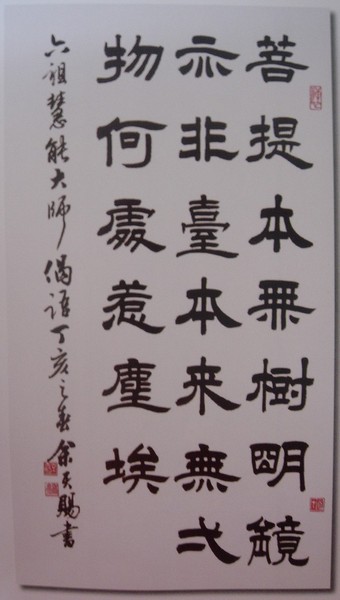 菩提本無樹明鏡
亦非臺本来無弌
物何處惹塵埃
六祖慧能大師偈語丁亥之春余天賜書